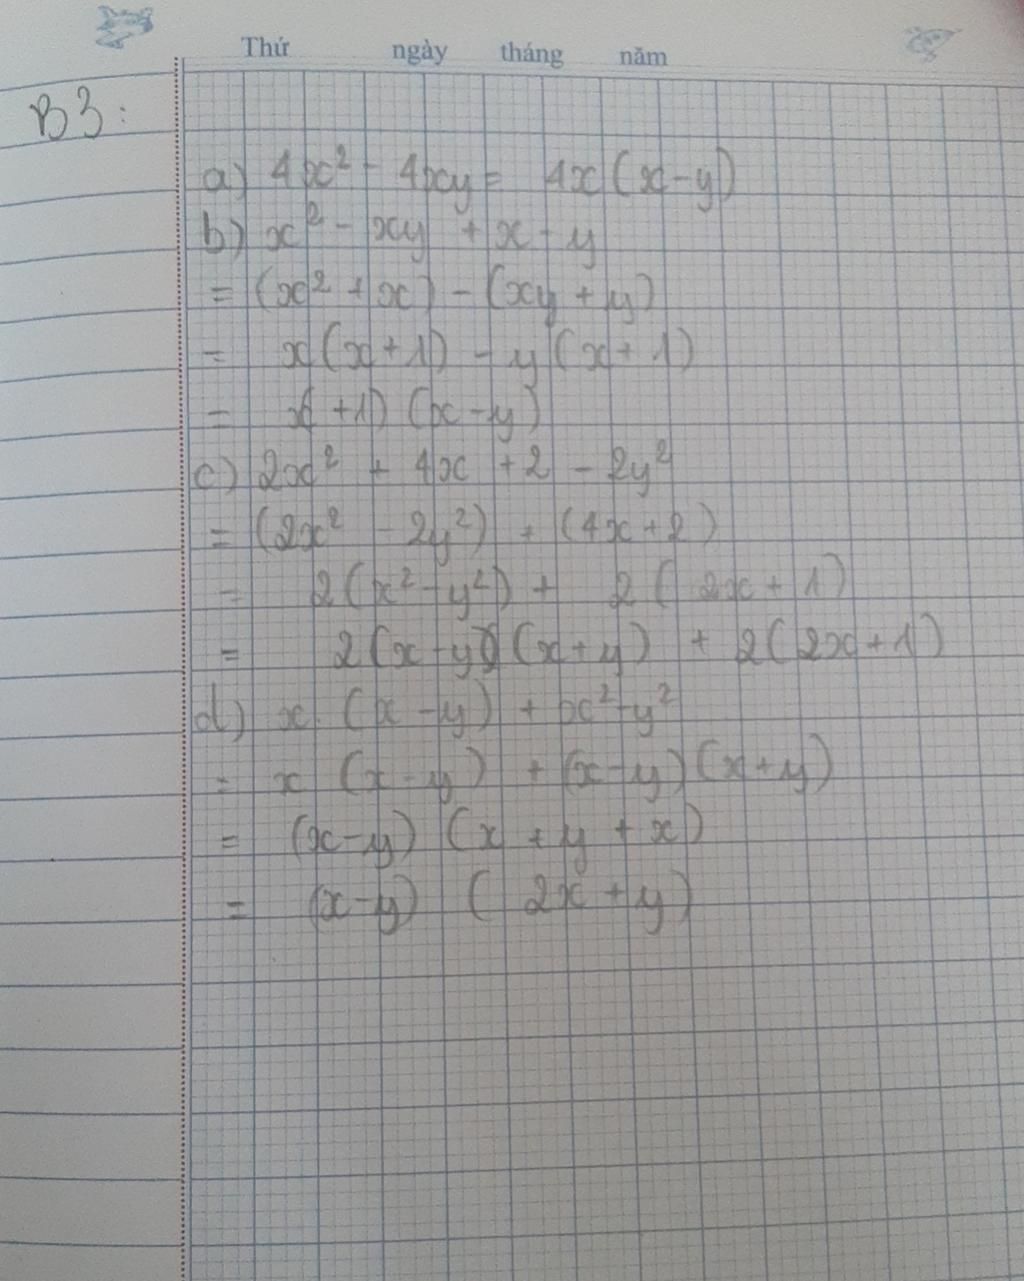 Thứ ngày tháng năm
B3:
a) 4x² - 4xy = 4x(x-y)
b) x² - xy + x - y
= (x² + x) - (xy + y)
= x(x+1) - y(x+1)
= x( +1) (x-y)
c) 2x² + 4x + 2 - 2y²
= (2x² - 2y²) + (4x+2)
= 2(x²-y²) + 2(2x+1)
= 2(x-y)(x+y) + 2(2x+1)
d) x. (x-y) + x²-y²
= x (x-y) + (x-y)(x+y)
= (x-y) (x+y+x)
= (x-y) (2x+y)